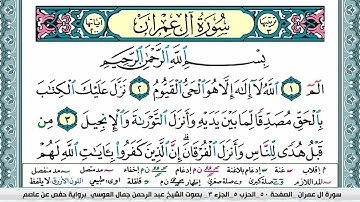 سُورَةُ آلِ عِمْرَانَ
بِسْمِ ٱللَّهِ ٱلرَّحْمَٰنِ ٱلرَّحِيمِ
الٓمٓ ١ ٱللَّهُ لَآ إِلَٰهَ إِلَّا هُوَ ٱلْحَىُّ ٱلْقَيُّومُ ٢ نَزَّلَ عَلَيْكَ ٱلْكِتَٰبَ
بِٱلْحَقِّ مُصَدِّقًا لِّمَا بَيْنَ يَدَيْهِ وَأَنزَلَ ٱلتَّوْرَىٰةَ وَٱلْإِنجِيلَ ٣ مِن
قَبْلُ هُدًى لِّلنَّاسِ وَأَنزَلَ ٱلْفُرْقَانَ إِنَّ ٱلَّذِينَ كَفَرُوا۟ بِـَٔايَٰتِ ٱللَّهِ لَهُمْ
سورة آل عمران - الصفحة ٥٠ - الجزء ٣ بصوت الشيخ عبد الرحمن جمال العوسي رواية حفص عن عاصم